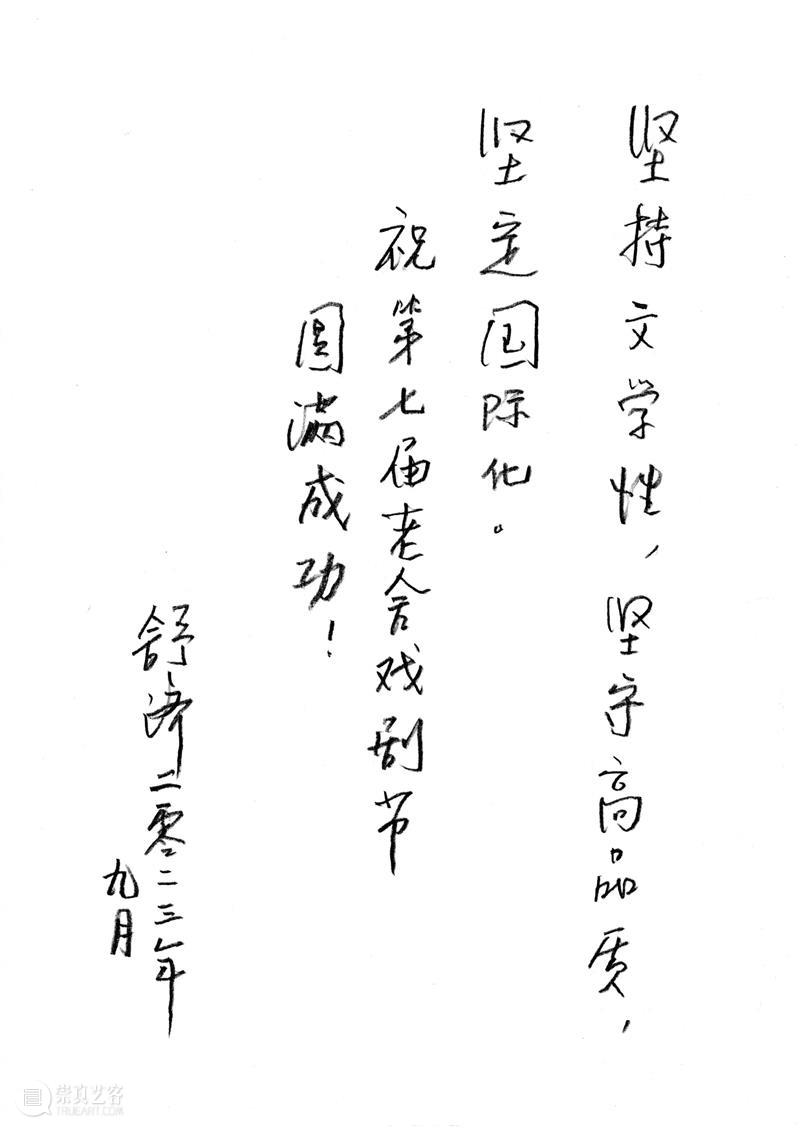 坚持文学性，坚守高品质，
坚定国际化。
祝第七届老舍戏剧节
圆满成功！
舒济 二零二三年
九月
崇真艺客
TRUEART.COM